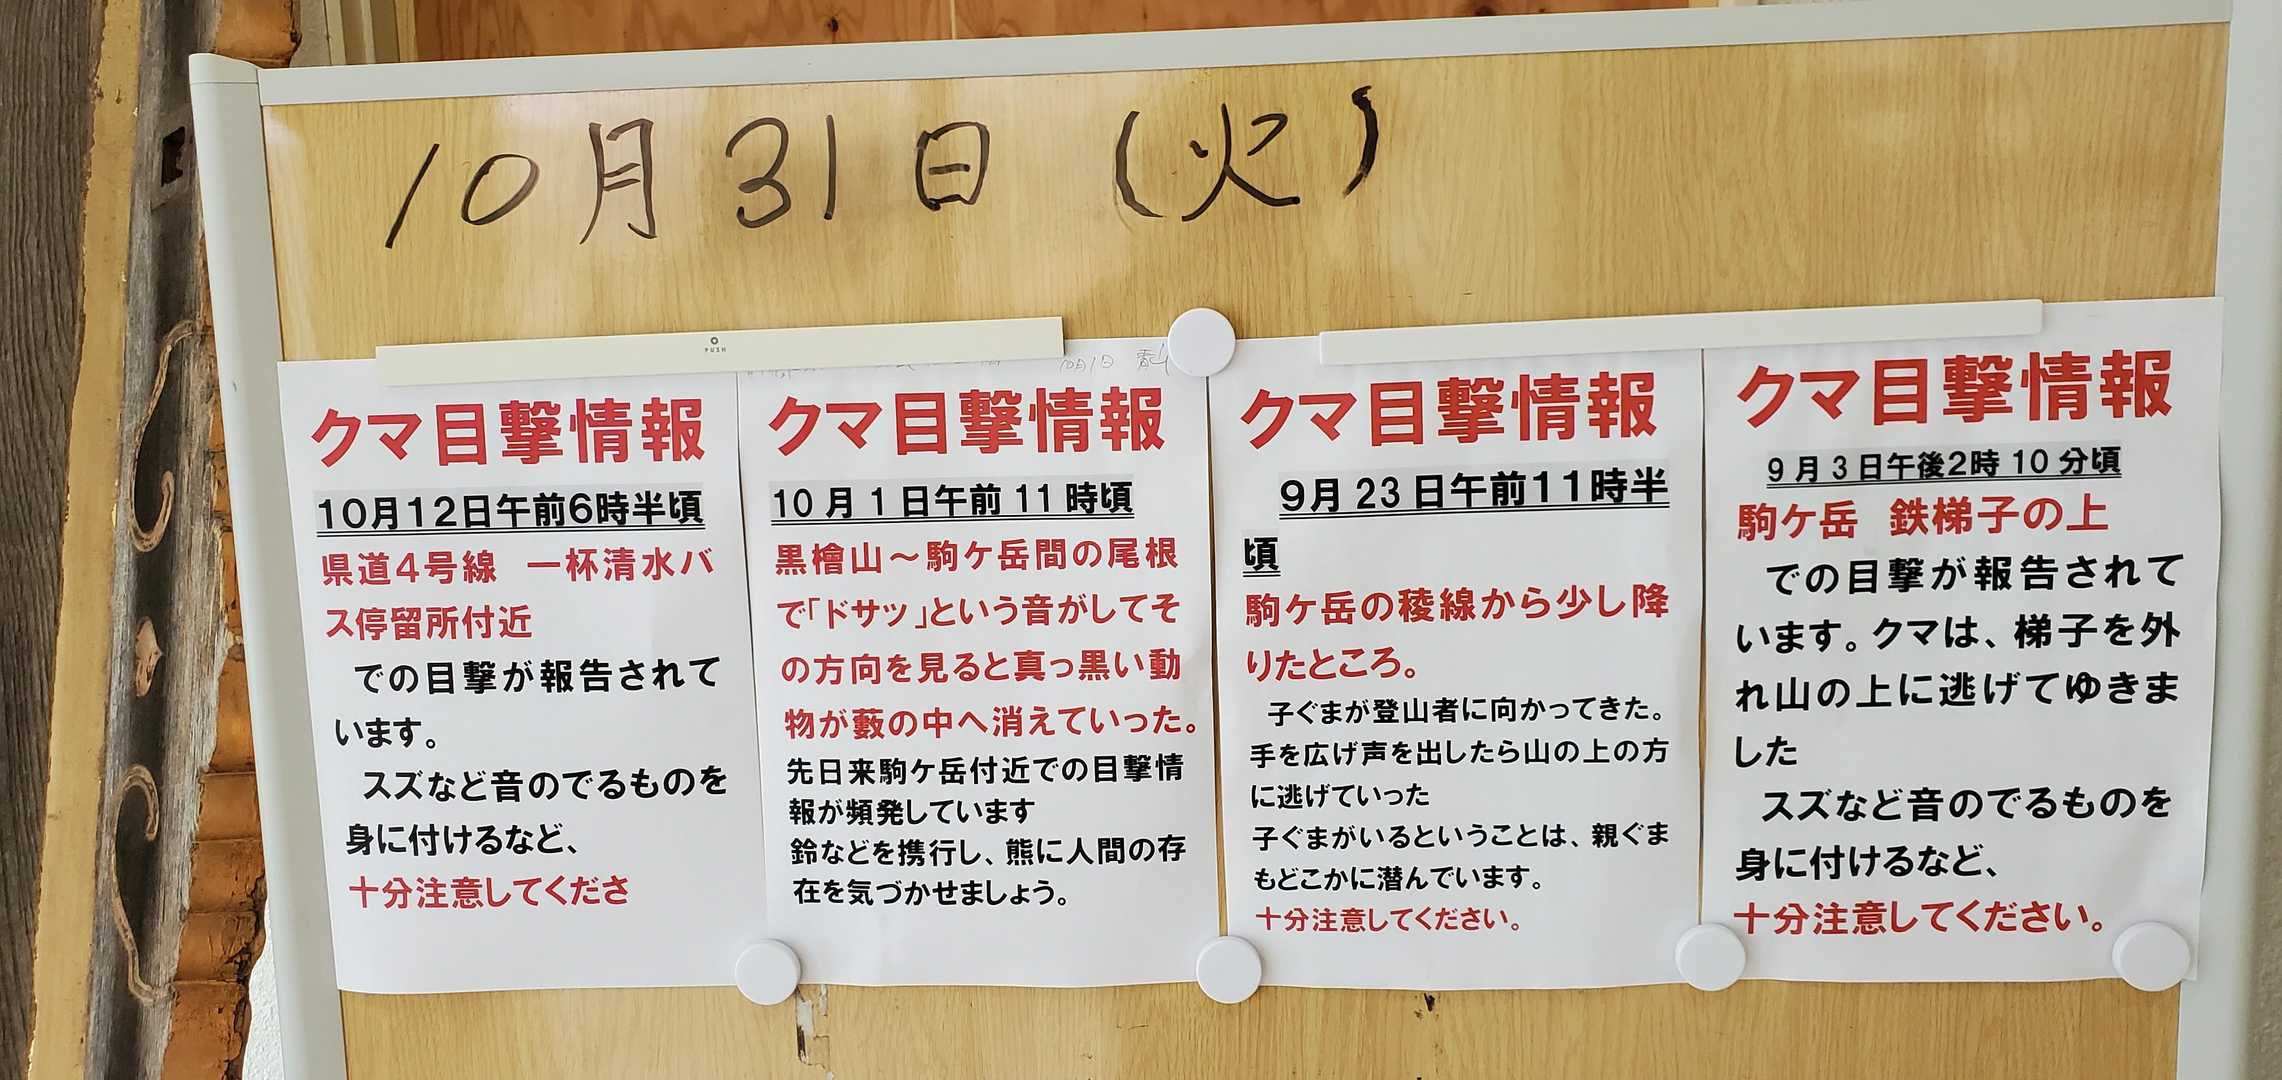 10月31日(火)
PUSH
10月1日
クマ目撃情報
10月12日午前6時半頃
県道4号線　一杯清水バ
ス停留所付近
での目撃が報告されて
います。
スズなど音のでるものを
身に付けるなど、
十分注意してくださ
クマ目撃情報
10月1日午前11時頃
黒檜山～駒ケ岳間の尾根
で「ドサッ」という音がしてそ
の方向を見ると真っ黒い動
物が藪の中へ消えていった。
先日来駒ケ岳付近での目撃情
報が頻発しています
鈴などを携行し、熊に人間の存
在を気づかせましょう。
クマ目撃情報
9月23日午前11時半
頃
駒ケ岳の稜線から少し降
りたところ。
子ぐまが登山者に向かってきた。
手を広げ声を出したら山の上の方
に逃げていった
子ぐまがいるということは、親ぐま
もどこかに潜んでいます。
十分注意してください。
クマ目撃情報
9月3日午後2時10分頃
駒ケ岳　鉄梯子の上
での目撃が報告されて
います。クマは、梯子を外
れ山の上に逃げてゆきま
した
スズなど音のでるものを
身に付けるなど、
十分注意してください。